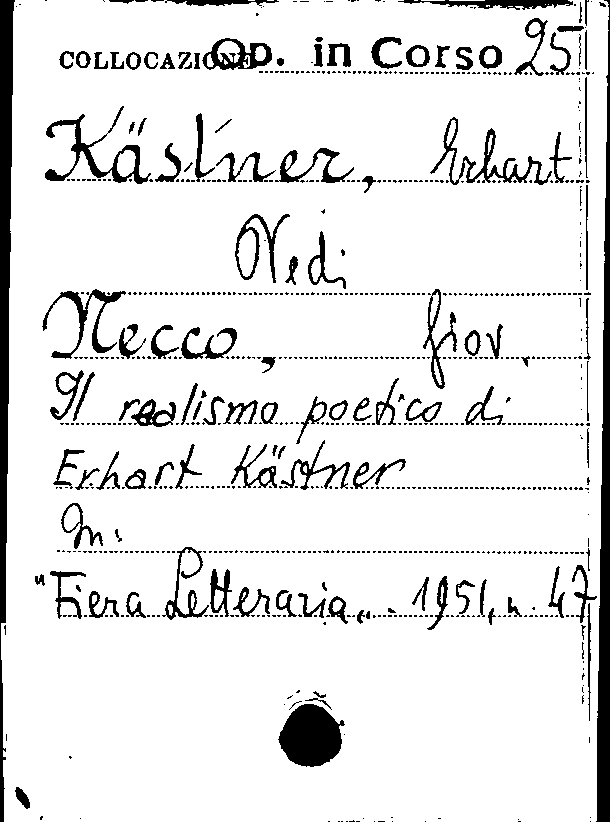 COLLOCAZIONE Op. in Corso 25
Kästner, Erhart
Vedi
Necco, Giov.
Il realismo poetico di
Erhart Kästner
In:
"Fiera Letteraria„. 1951, n. 47